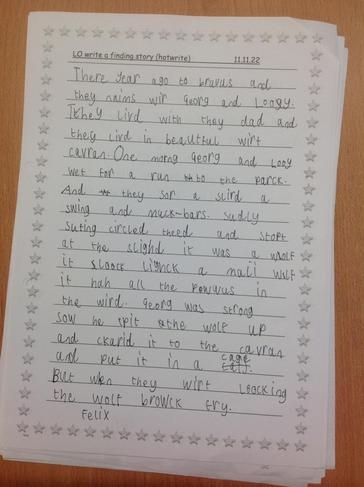 LO write a finding story (hotwrite) 11.11.22
There year ago to bruvus and
they naims wir Georg and Loogy.
They livd with they dad and
they livd in beautful wirt
cavran. One morng Georg and Looy
wet for a run to the parck.
And they sor a slird a
swing and muck-bars. sudly
suting circled theed and stopt
at the slighd it was a woolf
it loock lighck a mali wolf
it hah all the powwus in
the wird. Georg was strong
sow he spit the wolf up
and ckarid it to the cavran
and put it in a cage
But when they wirt loocking
the wolf browck fry.
Felix